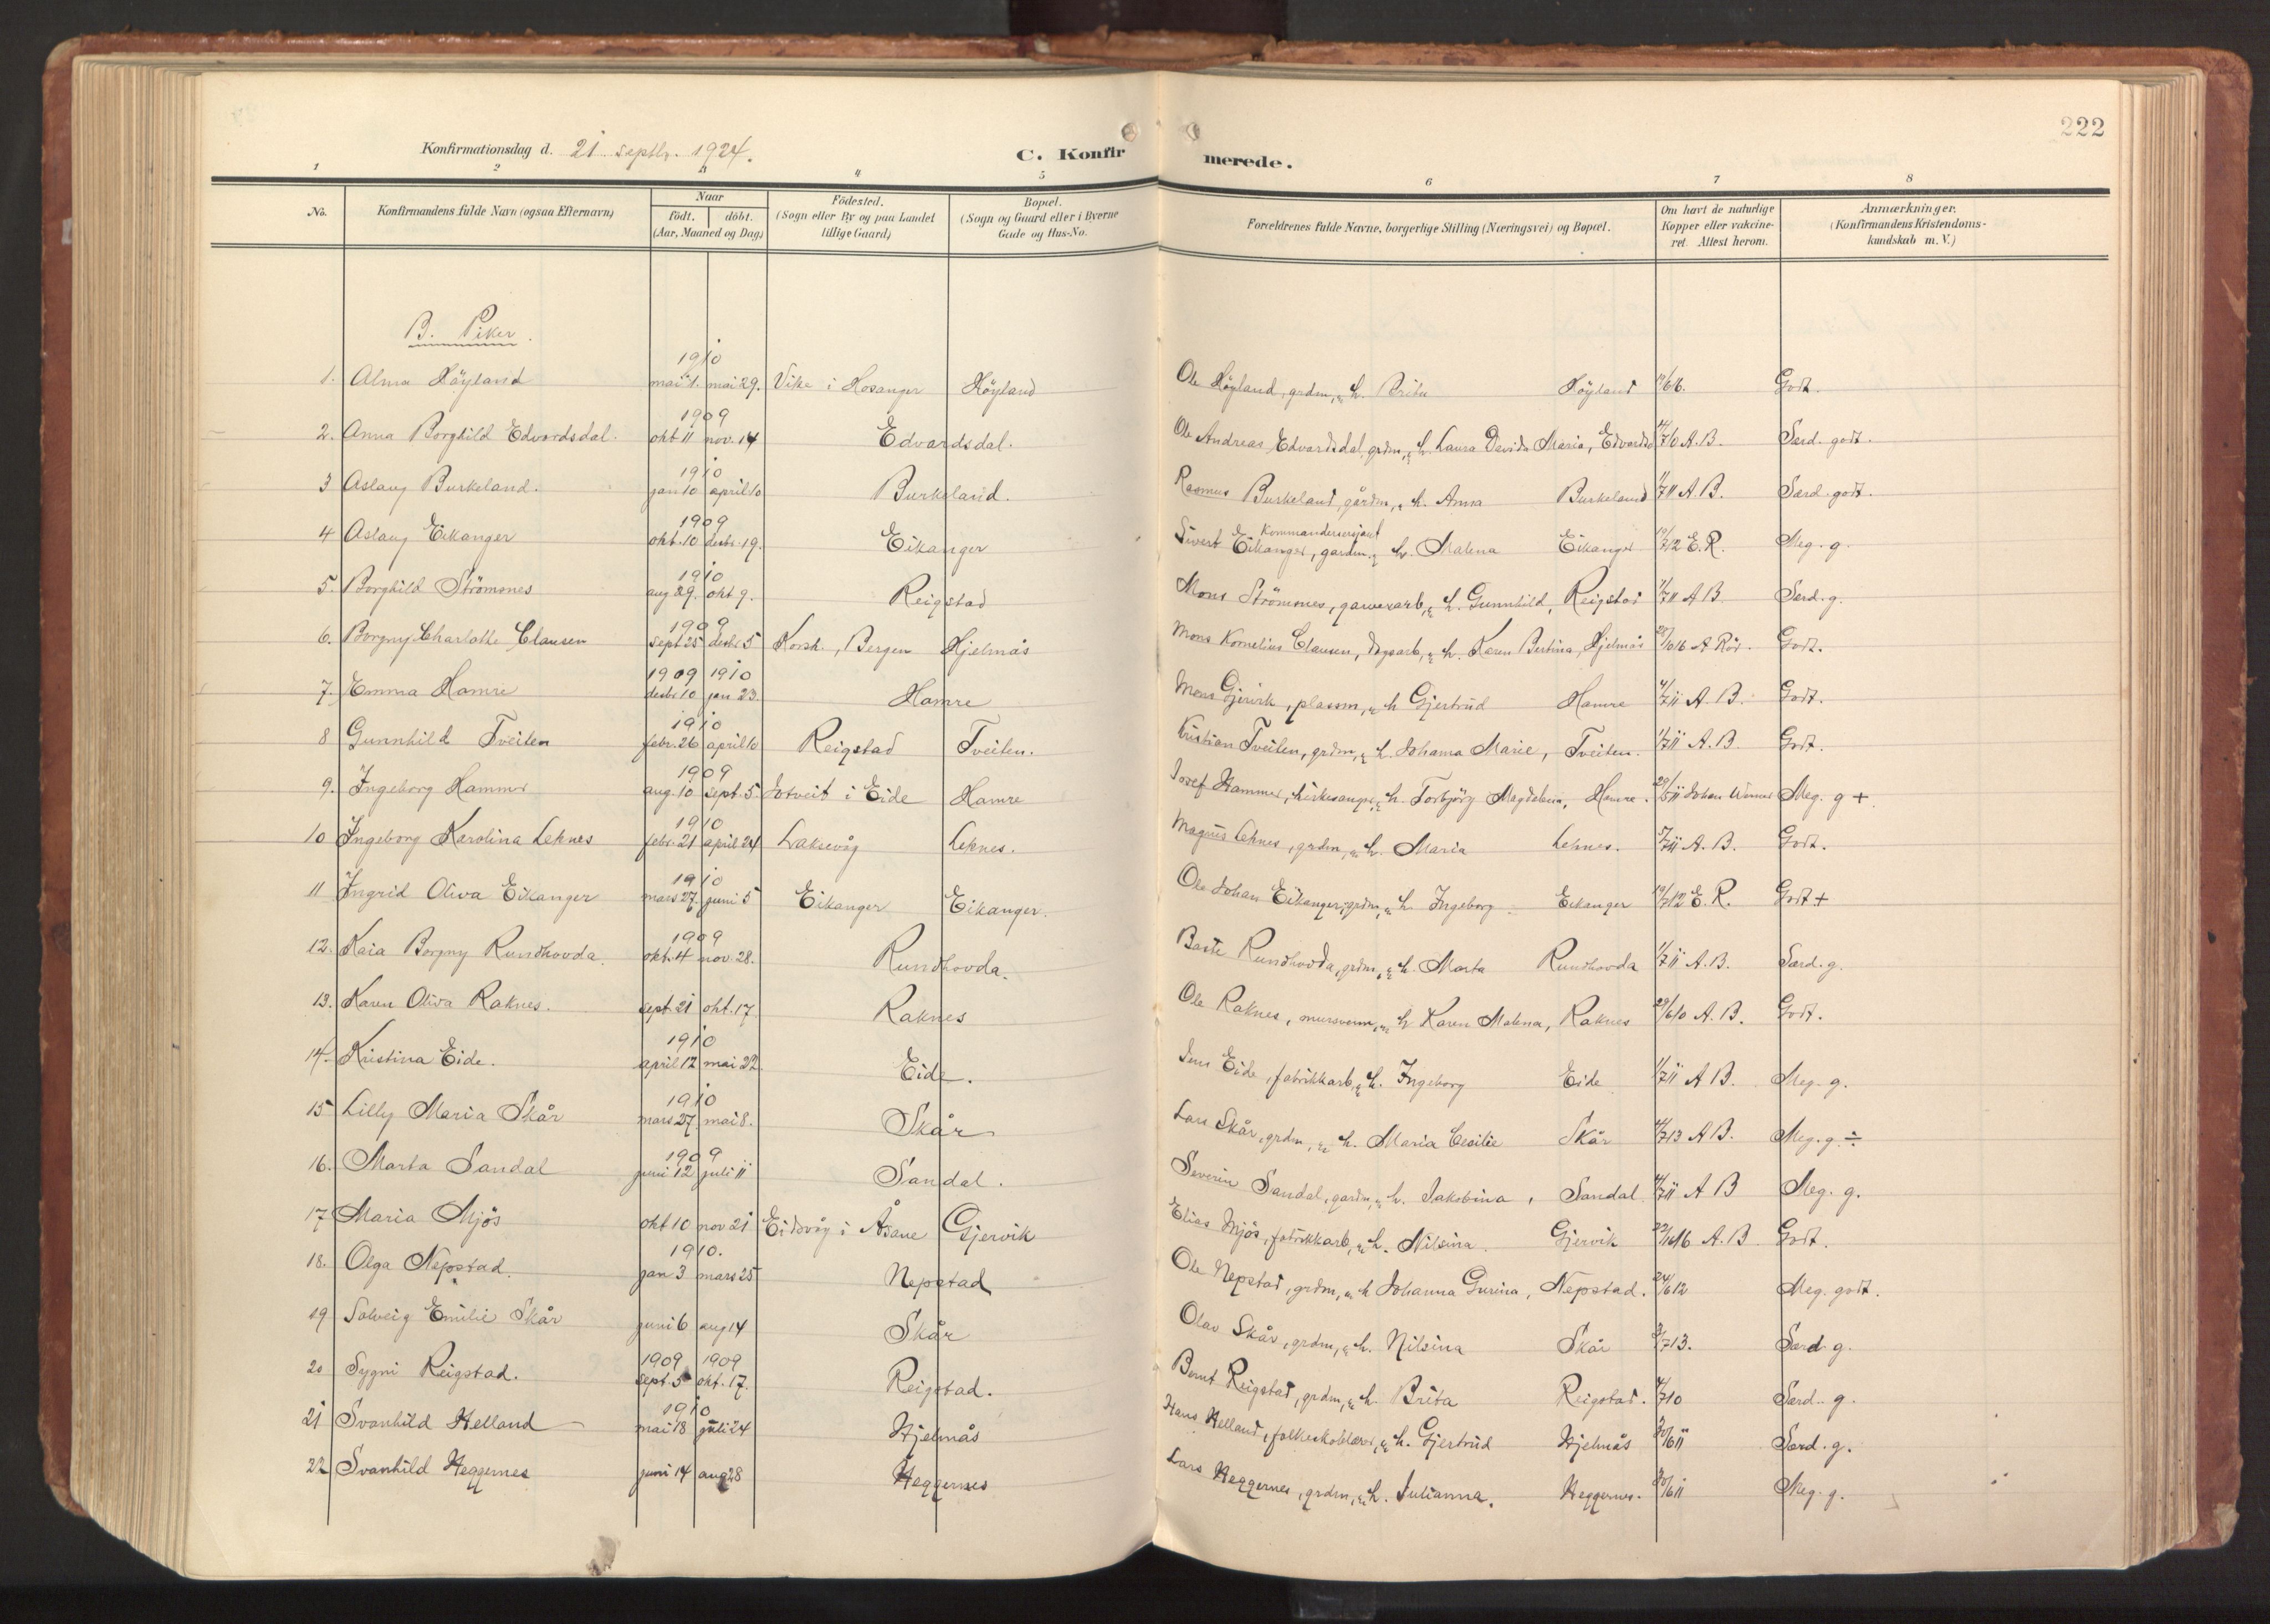 222
Konfirmationsdag d. 21 septbr. 1924.
C. Konfirmerede.
1 2 3 4 5 6 7 8
No.
Konfirmandens fulde Navn (ogsaa Efternavn)
Naar
födt. döbt.
(Aar, Maaned og Dag)
Födested.
(Sogn eller By og paa Landet
tillige Gaard)
Bopæl.
(Sogn og Gaard eller i Byerne
Gade og Hus-No.
Forældrenes fulde Navne, borgerlige Stilling (Næringsvei) og Bopæl.
Om havt de naturlige
Kopper eller vakcine-
ret. Attest herom.
Anmærkninger.
(Konfirmandens Kristendoms-
kundskab m. V.)
B. Piker.
1910
1. Alma Höyland mai 1. mai 29. Vike i Hosanger Höyland Ole Höyland, grdm, & h. Brita Höyland Godt.
1909
2. Anna Borghild Edvardsdal. okt 11 nov. 14 Edvardsdal. Ole Andreas Edvardsdal, grdm, & h. Laura Davida Maria, Edvardsd 4/7 10 A.B. Særd. godt.
1910
3 Aslaug Burkeland. jan 10 april 10 Burkeland. Rasmus Burkeland, gårdm, & h. Anna Burkeland 1/7 11 A.B. Særd. godt.
1909
4 Aslaug Eikanger okt. 10 desbr. 19. Eikanger Sivert Eikanger, Kommandersersjant gardm. & h. Malena Eikanger 19/7 12 E.R. Meg. g.
1910
5. Borghild Strömsnes aug 29. okt 9. Reigstad Mons Strömsnes, garverarb, & h. Gunnhild, Reigstad 1/7 11 A B. Særd. g.
1909
6. Borgny Charlotte Clausen sept 25 desbr 5 Korsk., Bergen Hjelmås Mons Kornelius Clausen, dagsarb, & h. Karen Bertina, Hjelmås 28/10 16 A Rör. Godt.
1909 1910
7. Emma Hamre desbr 10 jan 23. Hamre Mons Gjervik, plassm, & h Gjertrud Hamre 4/7 11 A. B. Godt.
1910
8 Gunnhild Tveiten febr. 26 april 10 Reigstad Tveiten. Kristian Tveiten, grdm, & h. Johanna Marie, Tveiten. 1/7 11 A. B. Godt.
1909
9. Ingeborg Hammer aug. 10 sept. 5. i Eide Hamre Josef Hammer, kirkesanger, & h. Torbjörg Magdalena, Hamre. 29/5 11 Johan Meg. g +.
1910
10 Ingeborg Karolina Leknes febr. 21 april 24 Laksevåg Leknes. Magnus Leknes, grdm, & h. Maria Leknes. 5/7 11 A. B. Godt.
1910
11 Ingrid Oliva Eikanger mars 27. juni 5 Eikanger Eikanger. Ole Johan Eikanger, grdm, & h. Ingeborg Eikanger 19/7 12 E. R. Godt +
1909
12. Kaia Borgny Rundhovda. okt. 4 nov. 28. Rundhovda. Baste Rundhovda, grdm, & h. Marta Rundhovda 1/7 11 A.B. Særd. g.
13. Karen Oliva Raknes. sept. 21 okt. 17. Raknes Ole Raknes, mursvenn, & h Karen Malena, Raknes 29/6 10 A. B. Godt.
1910
14. Kristina Eide. april 12 mai 22. Eide. Jens Eide, fabrikkarb, & h. Ingeborg Eide 1/7 11 A B. Meg. g.
1910
15 Lilly Maria Skår mars 27. mai 8. Skår Lars Skår, grdm, & h. Maria Cecilie Skår 4/7 13 A B. Meg. g. ÷
1909
16. Marta Sandal juni 12 juli 11 Sandal. Severin Sandal, gardm, & h. Jakobina, Sandal 4/7 11 A B Meg. g.
17 Maria Mjös okt 10 nov 21 Eidsvåg i Åsane Gjervik Elias Mjös, fabrikkarb, & h. Nilsina. Gjervik 22/10 16 A. B. Godt.
1910.
18. Olga Nepstad. jan 3 mars 25 Nepstad Ole Nepstad, grdm, & h Johanna Gurina, Nepstad. 24/6 12 Meg. godt.
19 Solveig Emilie Skår juni 6 aug 14 Skår Olav Skår, grdm, & h. Nilsina Skår 3/7 13. Særd. g.
1909 1909
20 Sygni Reigstad. sept. 5 okt. 17. Reigstad. Bernt Reigstad, grdm, & h. Brita Reigstad. 4/7 10 Særd. g.
1910
21 Svanhild Helland mai 18 juli 24 Hjelmås Hans Helland, folkeskolelærer, & h. Gjertrud Hjelmås 30/6 11 Særd. g.
22 Svanhild Heggernes juni 14 aug 28 Heggernes Lars Heggernes, grdm, & h. Julianna. Heggernes. 30/6 11 Meg. g.